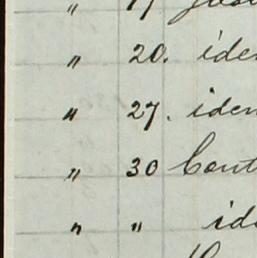 "
" 20. iden
" 27. iden
" 30 Cont
" " ide